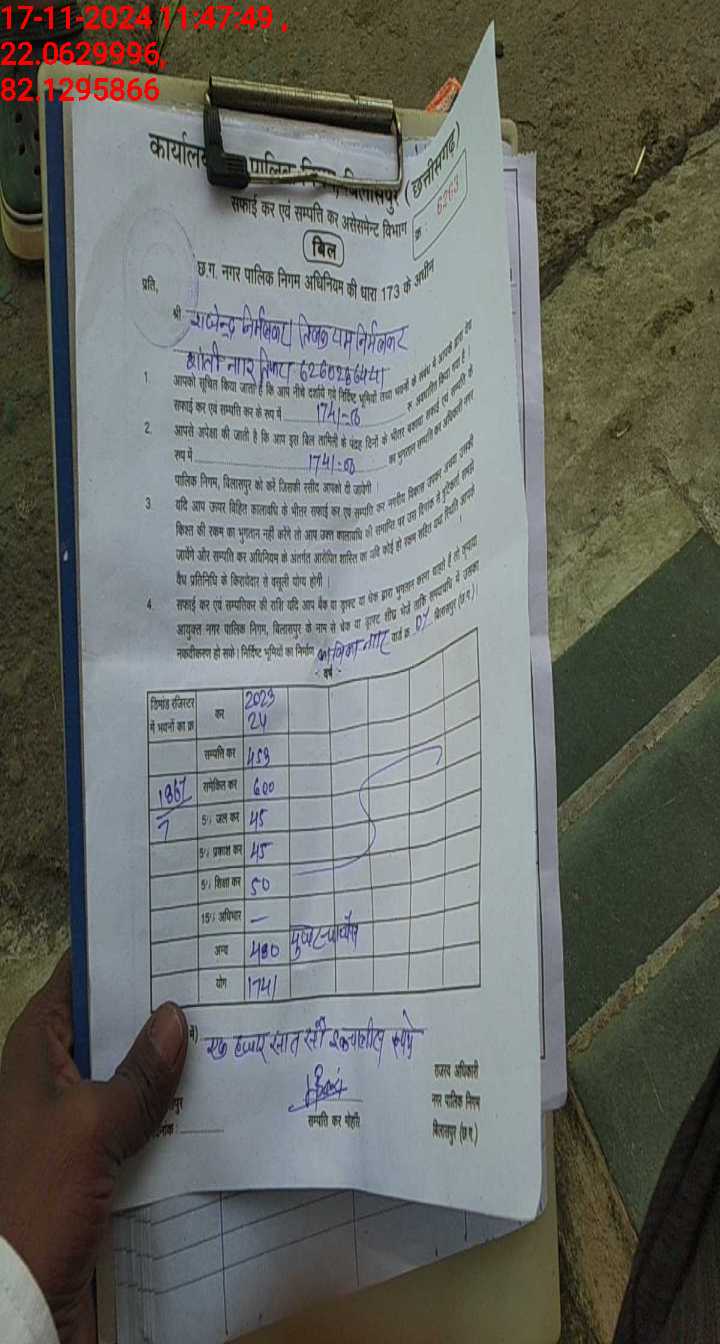 17-11-2024 11:47:49 ,
22.0629996,
82.1295866
बिलासपुर (छत्तीसगढ़)
सफाई कर एवं सम्पत्ति कर असेसमेन्ट विभाग
क्र. 6263
बिल
छ.ग. नगर पालिक निगम अधिनियम की धारा 173 के अधीन
प्रति,
श्री राजेन्द्र निर्मलकर / निर्मलकर
6260266441
1. आपको सूचित किया जाता है कि आप नीचे दर्शाये गये निर्दिष्ट भूमियों तथा भवनों के संबंध में आपके द्वारा देय
सफाई कर एवं सम्पत्ति कर के रूप में 1741=00 रू. अवधारित किया गया है ।
2. आपसे अपेक्षा की जाती है कि आप इस बिल तामिली के पंद्रह दिनों के भीतर बकाया सफाई एवं सम्पत्ति के
रूप में 1741=00 का भुगतान सम्पत्ति कर अधिकारी नगर
पालिक निगम, बिलासपुर को करें जिसकी रसीद आपको दी जावेगी ।
3. यदि आप ऊपर विहित कालावधि के भीतर सफाई कर एवं सम्पत्ति कर नगरीय विकास उपकर अथवा उसकी
किश्त की रकम का भुगतान नहीं करेंगे तो आप उक्त कालावधि की समाप्ति पर उस दिनांक से
जायेंगे और सम्पत्ति कर अधिनियम के अंतर्गत आरोपित शास्ति का यदि कोई हो रकम सहित यथा स्थिति आपसे
वैध प्रतिनिधि के किरायेदार से वसूली योग्य होगी ।
4. सफाई कर एवं सम्पत्तिकर की राशि यदि आप बैंक या ड्राफ्ट या चेक द्वारा भुगतान करना चाहते हैं तो कृपया
आयुक्त नगर पालिक निगम, बिलासपुर के नाम से चेक या ड्राफ्ट शीघ्र भेजें ताकि समयावधि में उसका
नकदीकरण हो सके । निर्दिष्ट भूमियों का निर्माण वार्ड क्र. 07 बिलासपुर (छ.ग.) ।
- वर्ष -
डिमांड रजिस्टर में भवनों का क्र कर 2023 24
सम्पत्ति कर 459
1867/7 समेकित कर 600
5% जल कर 45
5% प्रकाश कर 45
5% शिक्षा कर 50
15% अधिभार —
अन्य 480
योग 1741
एक हजार सात सौ इकचालीस रूपये
राजस्व अधिकारी
सम्पत्ति कर मोहर्रिर नगर पालिक निगम
बिलासपुर (छ.ग.)